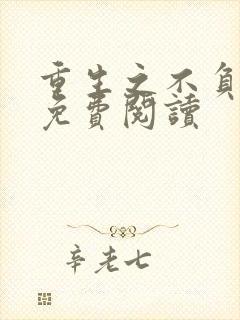 重生之不負
免費閱讀
辛老七